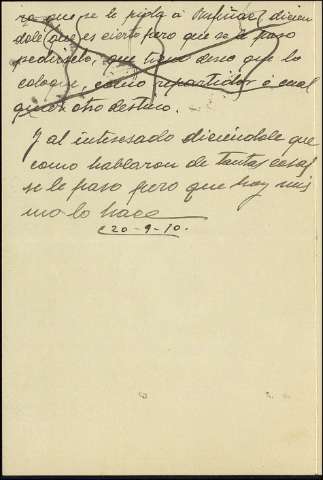 ra que se le pida á Muñiz, dicien
dole que es cierto pero que se le paso
pedirselo, que tiene deseo que lo
coloque, como repartidor ó cual
quier otro destino.
Y al interesado diciéndole que
como hablaron de tantas cosas
se le paso pero que hoy mis
mo lo hace
20-9-10.